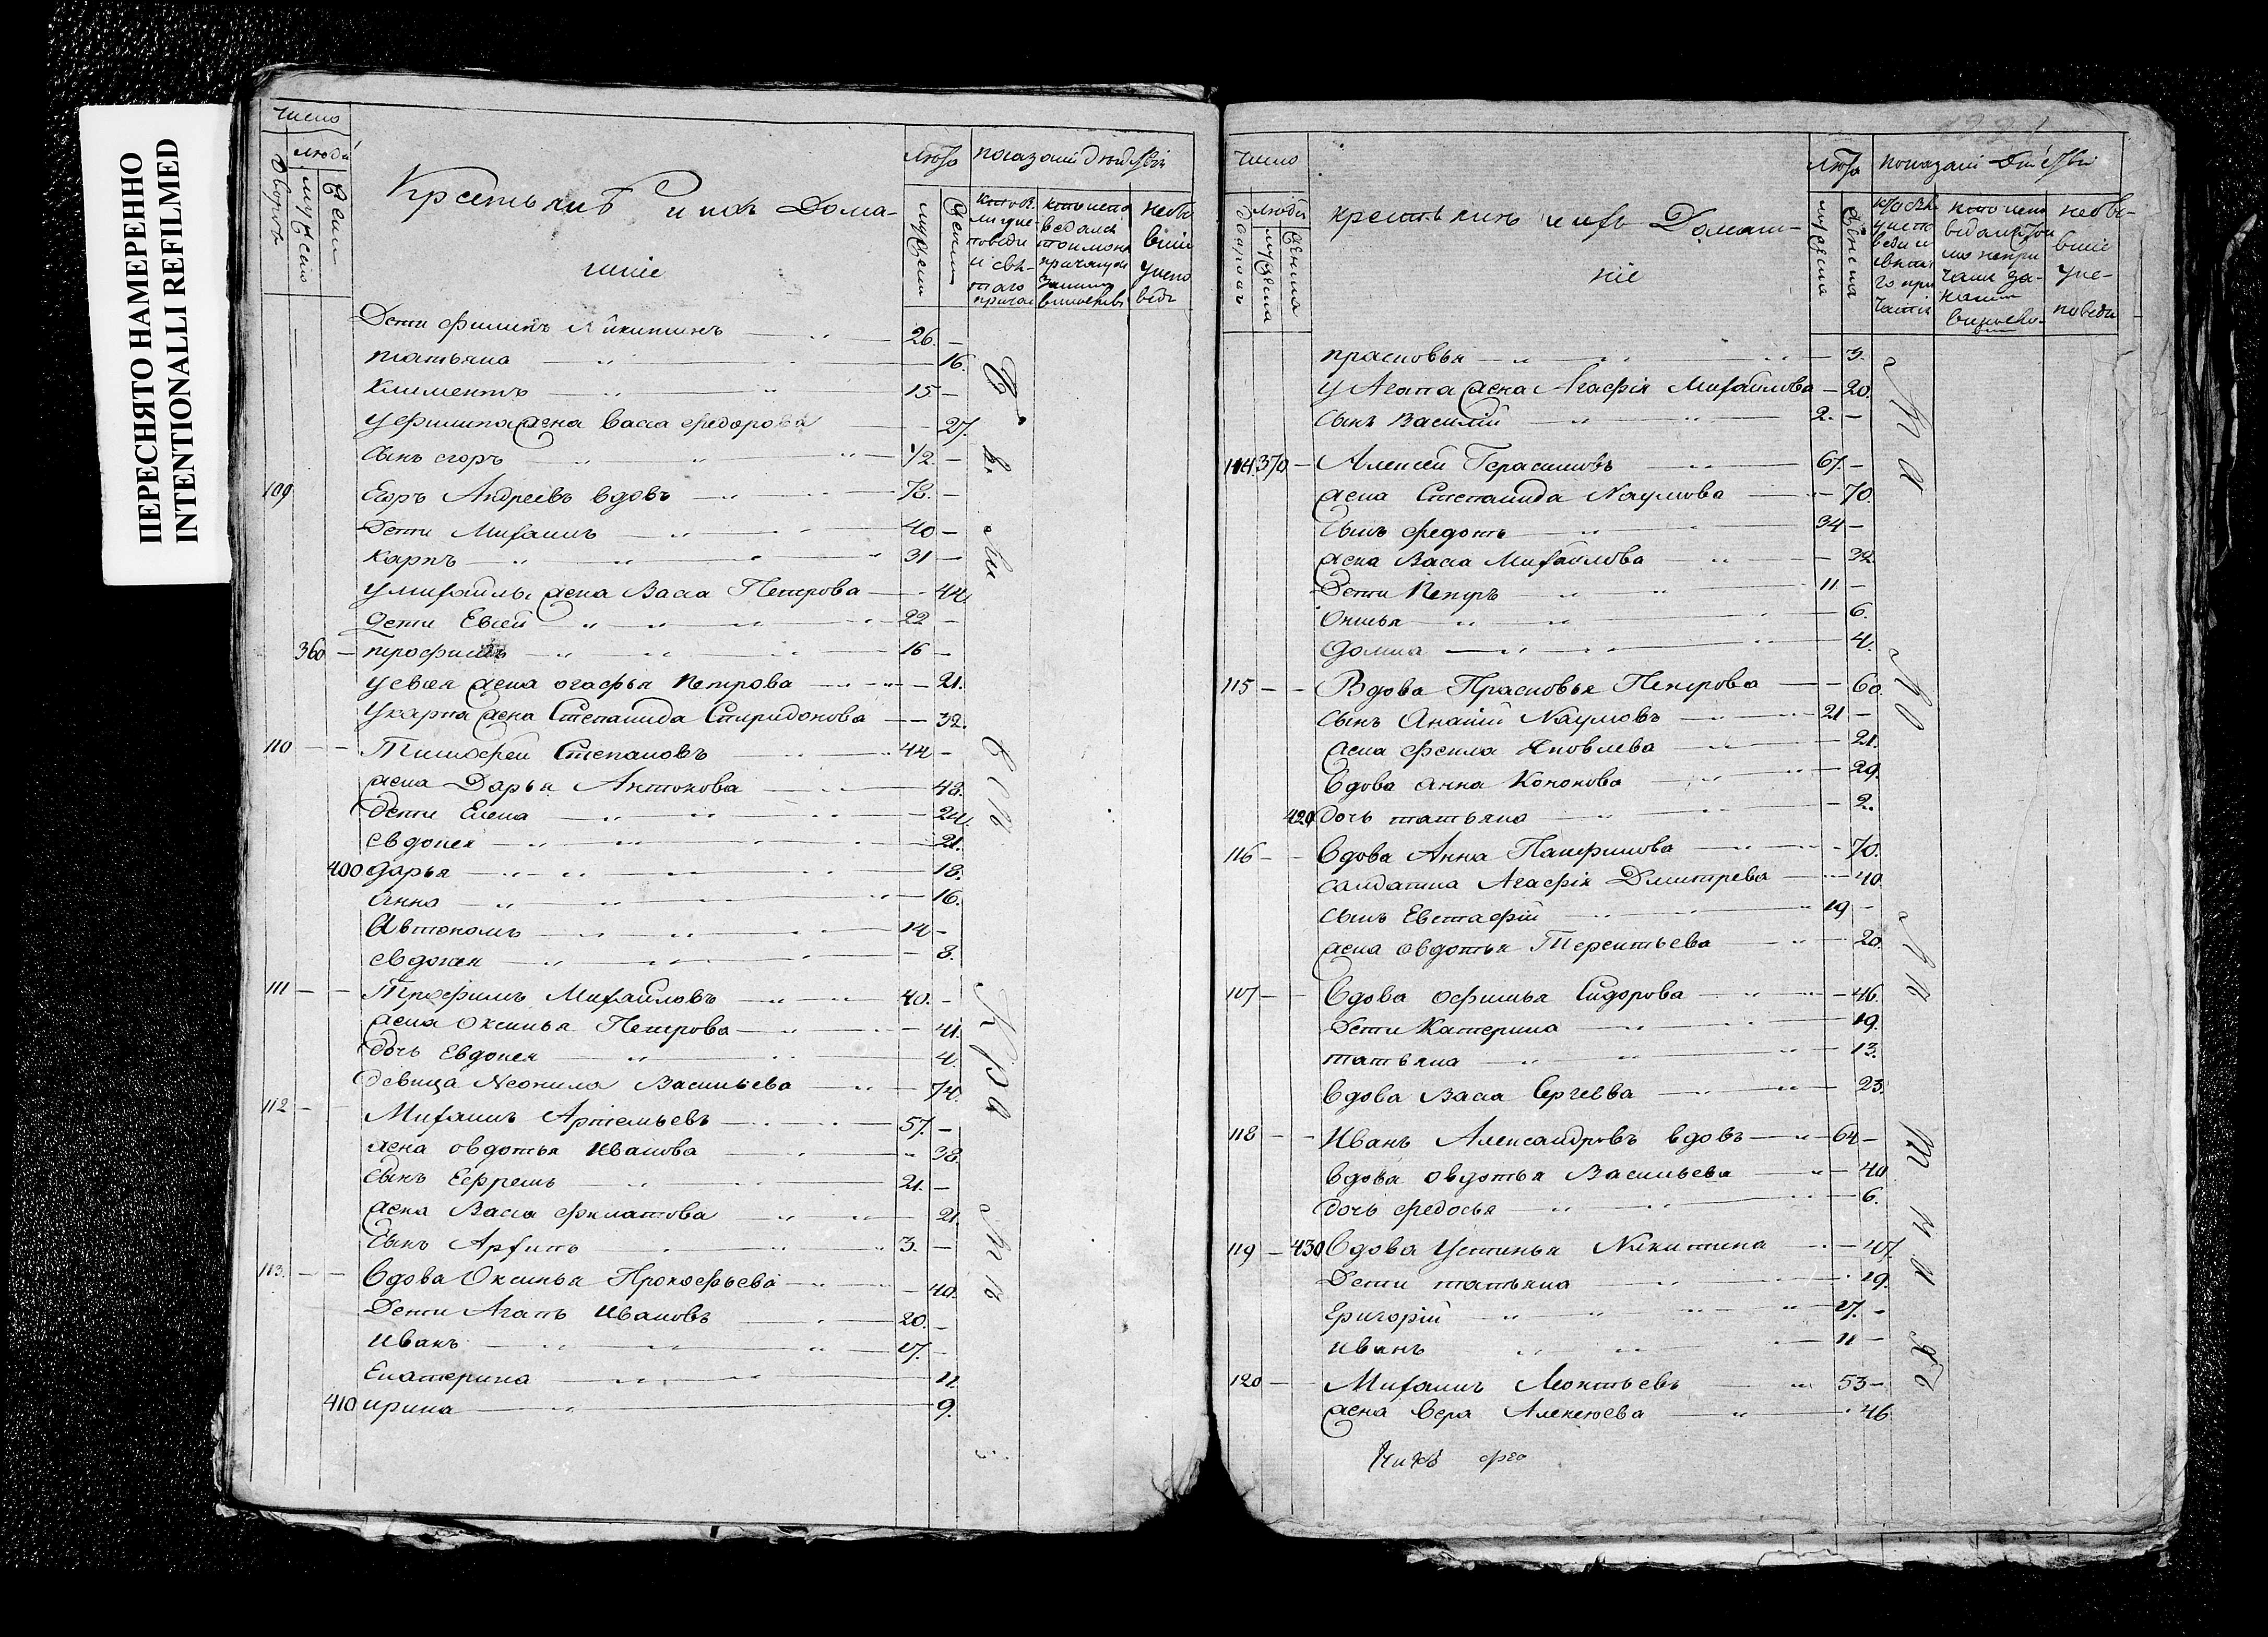 ПЕРЕСНЯТО НАМЕРЕННО
INTENTIONALLI REFILMED
число
людей
дворовъ
мужеска
женска
Крестьянѣ и ихъ Дома-
шніе
лѣта
показаніе действ
мужеска
женска
Дети филипъ Никитинъ 26.
татьяна 16.
климентъ 15
У филипа жена Васса федорова 27.
Сынъ егоръ 1/2
109 Егоръ Андреевъ вдовъ 78.
Дети Михаилъ 40
карпъ 31
У михайлы жена Васса Петрова 44.
Дети Евсей 22
360 трофимъ 16
У евсея жена огафья Петрова 21.
У карпа жена Степанида Спиридонова 32.
110 Тимофей Степановъ 44
жена Дарья Антонова 48.
Дети Елена 24.
евдокея 21.
400 дарья 18.
Анна 16.
Автономъ 14
евдокея 8.
111 Трофимъ Михайловъ 40.
жена Оксинья Петрова 41.
дочь Евдокея 4.
девица Неонила Васильева 74.
112 Михаилъ Артемьевъ 57.
жена овдотья Иванова 38.
Сынъ Ефремъ 21.
жена Васса филатова 21.
Сынъ Архипъ 3.
113. Вдова Оксинья Прокофьева 40.
Дети Агапъ Ивановъ 20.
Иванъ 17.
Екатерина 11.
410 ирина 9.
число
людей
дворовъ
мужеска
женска
крестьянъ и ихъ Домаш-
ніе
лѣта
показаніе действ
мужеска
женска
прасковья 3.
У Агапа жена Агафія Михайлова 20.
Сынъ Василій 2.
114 370 Алексей Герасимовъ 67.
жена Степанида Наумова 70.
Сынъ федотъ 34
жена Васса Михайлова 32
Дети Петръ 11.
Ониья 6.
Домна 4.
115 Вдова Прасковья Петрова 60.
сынъ Ананій Наумовъ 21
жена фекла Яковлева 21.
Вдова Анна Кононова 29.
420 Дочь татьяна 2.
116 Вдова Анна Панфилова 70.
солдатка Агафія Дмитрева 40.
сынъ Евстафій 19
жена овдотья Терентьева 20.
107 Вдова Офимья Сидорова 46.
Дети Катерина 19.
татьяна 13.
Вдова Васса Сергеева 23.
118 Иванъ Александровъ вдовъ 64
Вдова овдотья Васильева 40
дочь федосья 6.
119 430 Вдова Устинья Никитина 47.
Дети татьяна 19.
Григорій 17.
иванъ 11
120 Михаилъ Леонтьевъ 53
жена Вера Алексеева 46